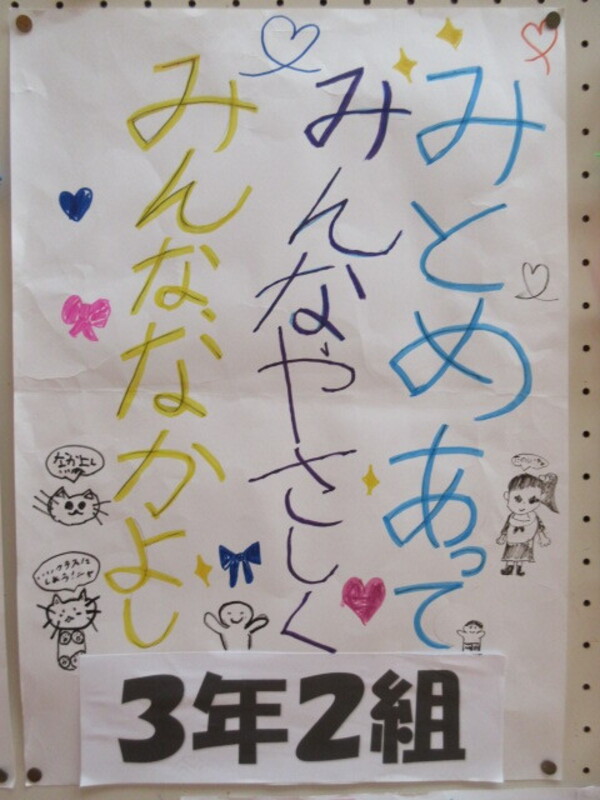 みとめあって
みんなやさしく
みんななかよし
なかよし
クラスに
しよう!
3年2組